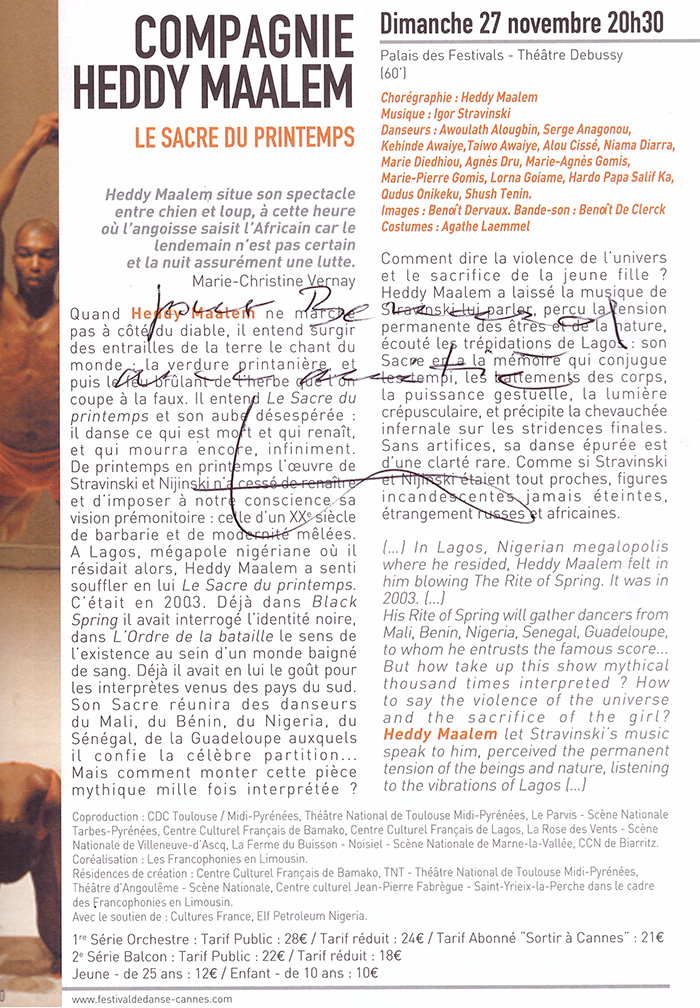 COMPAGNIE
HEDDY MAALEM
LE SACRE DU PRINTEMPS
Heddy Maalem situe son spectacle
entre chien et loup, à cette heure
où l'angoisse saisit l'Africain car le
lendemain n'est pas certain
et la nuit assurément une lutte.
Marie-Christine Vernay
Quand Heddy Maalem ne marche
pas à côté du diable, il entend surgir
des entrailles de la terre le chant du
monde : la verdure printanière, et
puis le feu brûlant de l'herbe que l'on
coupe à la faux. Il entend Le Sacre du
printemps et son aube désespérée :
il danse ce qui est mort et qui renaît,
et qui mourra encore, infiniment.
De printemps en printemps l'œuvre de
Stravinski et Nijinski n'a cessé de renaître
et d'imposer à notre conscience sa
vision prémonitoire : celle d'un XXe siècle
de barbarie et de modernité mêlées.
A Lagos, mégapole nigériane où il
résidait alors, Heddy Maalem a senti
souffler en lui Le Sacre du printemps.
C'était en 2003. Déjà dans Black
Spring il avait interrogé l'identité noire,
dans L'Ordre de la bataille le sens de
l'existence au sein d'un monde baigné
de sang. Déjà il avait en lui le goût pour
les interprètes venus des pays du sud.
Son Sacre réunira des danseurs
du Mali, du Bénin, du Nigeria, du
Sénégal, de la Guadeloupe auxquels
il confie la célèbre partition...
Mais comment monter cette pièce
mythique mille fois interprétée ?
Dimanche 27 novembre 20h30
Palais des Festivals - Théâtre Debussy
(60')
Chorégraphie : Heddy Maalem
Musique : Igor Stravinski
Danseurs : Awoulath Alougbin, Serge Anagonou,
Kehinde Awaiye,Taiwo Awaiye, Alou Cissé, Niama Diarra,
Marie Diedhiou, Agnès Dru, Marie-Agnès Gomis,
Marie-Pierre Gomis, Lorna Goiame, Hardo Papa Salif Ka,
Qudus Onikeku, Shush Tenin.
Images : Benoît Dervaux. Bande-son : Benoît De Clerck
Costumes : Agathe Laemmel
Comment dire la violence de l'univers
et le sacrifice de la jeune fille ?
Heddy Maalem a laissé la musique de
Stravinski lui parler, perçu la tension
permanente des êtres et de la nature,
écouté les trépidations de Lagos : son
Sacre en a la mémoire qui conjugue
les tempi, les battements des corps,
la puissance gestuelle, la lumière
crépusculaire, et précipite la chevauchée
infernale sur les stridences finales.
Sans artifices, sa danse épurée est
d'une clarté rare. Comme si Stravinski
et Nijinski étaient tout proches, figures
incandescentes jamais éteintes,
étrangement russes et africaines.
(...) In Lagos, Nigerian megalopolis
where he resided, Heddy Maalem felt in
him blowing The Rite of Spring. It was in
2003. (...)
His Rite of Spring will gather dancers from
Mali, Benin, Nigeria, Senegal, Guadeloupe,
to whom he entrusts the famous score...
But how take up this show mythical
thousand times interpreted ? How
to say the violence of the universe
and the sacrifice of the girl?
Heddy Maalem let Stravinski's music
speak to him, perceived the permanent
tension of the beings and nature, listening
to the vibrations of Lagos (...)
Coproduction : CDC Toulouse / Midi-Pyrénées, Théâtre National de Toulouse Midi-Pyrénées, Le Parvis - Scène Nationale
Tarbes-Pyrénées, Centre Culturel Français de Bamako, Centre Culturel Français de Lagos, La Rose des Vents - Scène
Nationale de Villeneuve-d'Ascq, La Ferme du Buisson - Noisiel - Scène Nationale de Marne-la-Vallée, CCN de Biarritz.
Coréalisation : Les Francophonies en Limousin.
Résidences de création : Centre Culturel Français de Bamako, TNT - Théâtre National de Toulouse Midi-Pyrénées,
Théâtre d'Angoulême - Scène Nationale, Centre culturel Jean-Pierre Fabrègue - Saint-Yrieix-la-Perche dans le cadre
des Francophonies en Limousin.
Avec le soutien de : Cultures France, Elf Petroleum Nigeria.
1re Série Orchestre : Tarif Public : 28€ / Tarif réduit : 24€ / Tarif Abonné "Sortir à Cannes" : 21€
2e Série Balcon : Tarif Public : 22€ / Tarif réduit : 18€
Jeune - de 25 ans : 12€ / Enfant - de 10 ans : 10€
www.festivaldedanse-cannes.com
pour